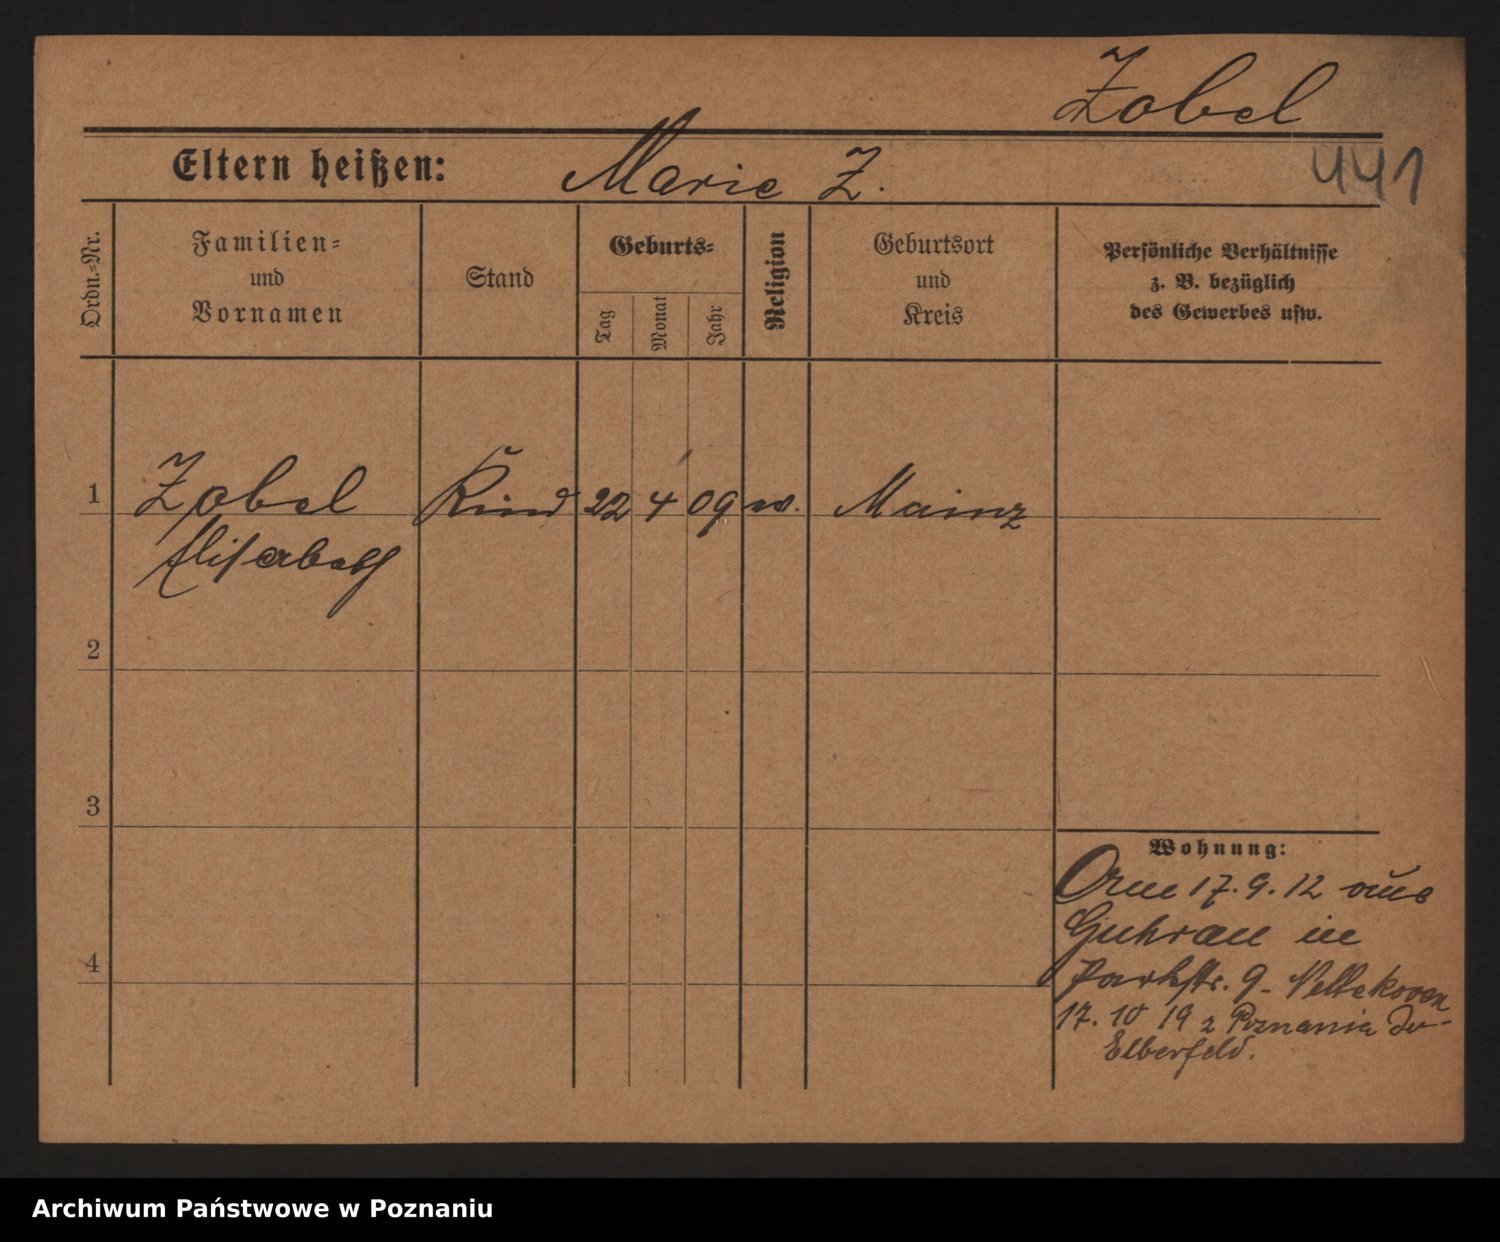 Zobel
441
Eltern heißen: Marie Z.
Ordn.=Nr.
Familien=
und
Vornamen
Stand
Geburts=
Tag
Monat
Jahr
Religion
Geburtsort
und
Kreis
Persönliche Verhältnisse
z. B. bezüglich
des Gewerbes usw.
1 Zobel Kind 22 4 09 w. Mainz
Elisabeth
2
3
4
Wohnung:
17. 9. 12 aus
Guhrau in
Parkstr. 9
17. 10 19 z Poznania do
Elberfeld.
Archiwum Państwowe w Poznaniu